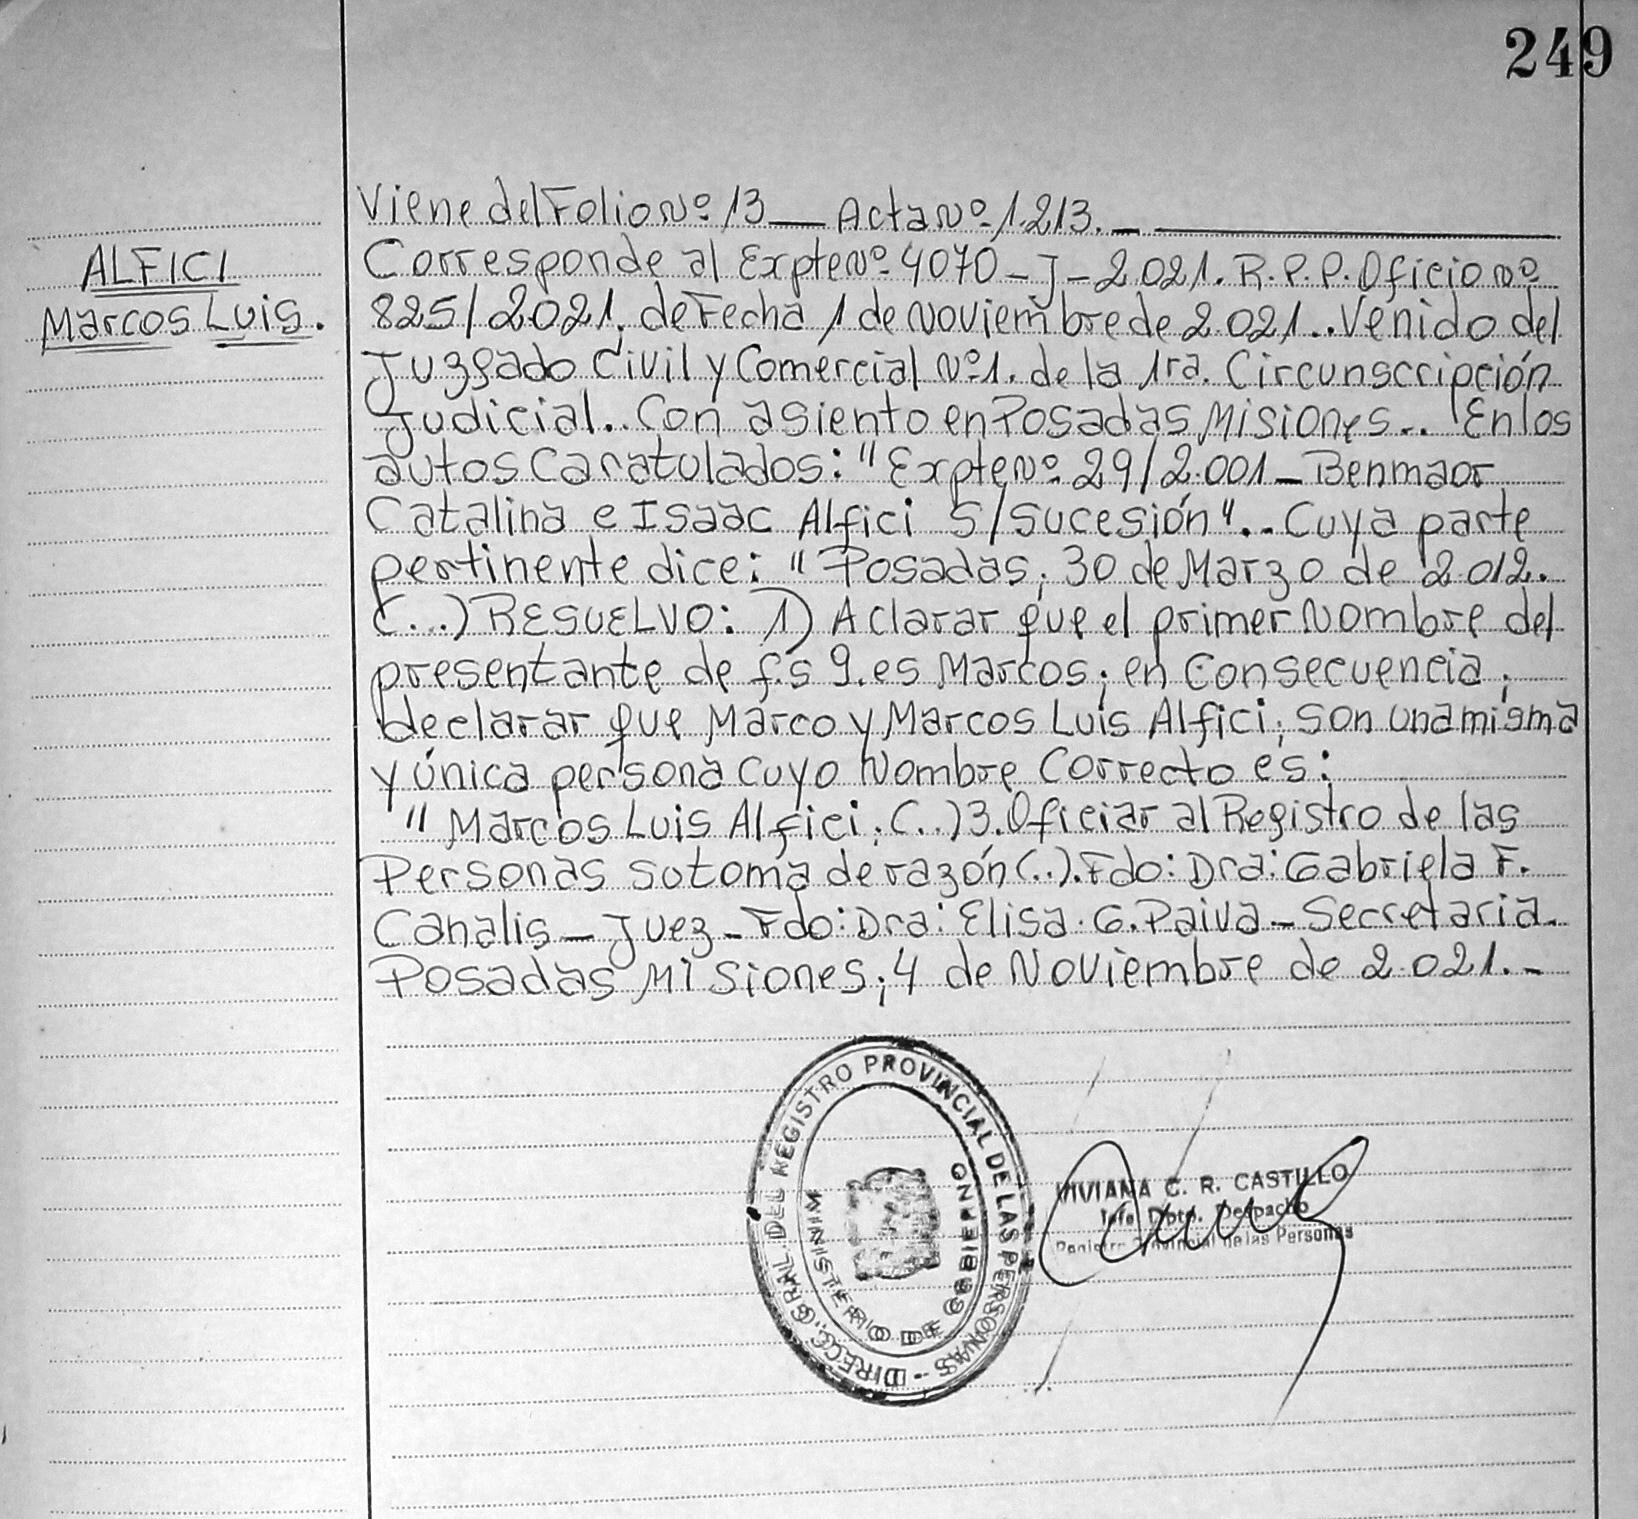 249
Viene del Folio Nº 13 — Acta Nº 1.213. —
ALFICI
Marcos Luis.
Corresponde al Expte Nº 4070 - J - 2.021. R.P.P. Oficio Nº
825/2021. de Fecha 1 de Noviembre de 2.021.. Venido del
Juzgado Civil y Comercial Nº 1. de la 1ra. Circunscripción
Judicial.. Con asiento en Posadas Misiones.. En los
autos Caratulados: "Expte Nº 29/2.001 — Benmaor
Catalina e Isaac Alfici S/Sucesión".. Cuya parte
pertinente dice: "Posadas, 30 de Marzo de 2.012.
(...) RESUELVO: 1) Aclarar que el primer Nombre del
presentante de f.s 9. es Marcos; en Consecuencia,
declarar que Marco y Marcos Luis Alfici, son una misma
y única persona cuyo Nombre Correcto es:
"Marcos Luis Alfici. (..) 3. Oficiar al Registro de las
Personas su toma de razón (..). Fdo: Dra: Gabriela F.
Canalis — Juez - Fdo: Dra: Elisa. G. Paiva - Secretaria.
Posadas Misiones; 4 de Noviembre de 2.021. -
DIRECC. GRAL. DEL REGISTRO PROVINCIAL DE LAS PERSONAS -
MINISTERIO DE GOBIERNO
VIVIANA C. R. CASTILLO
Jefe Dpto. Despacho
Registro Provincial de las Personas